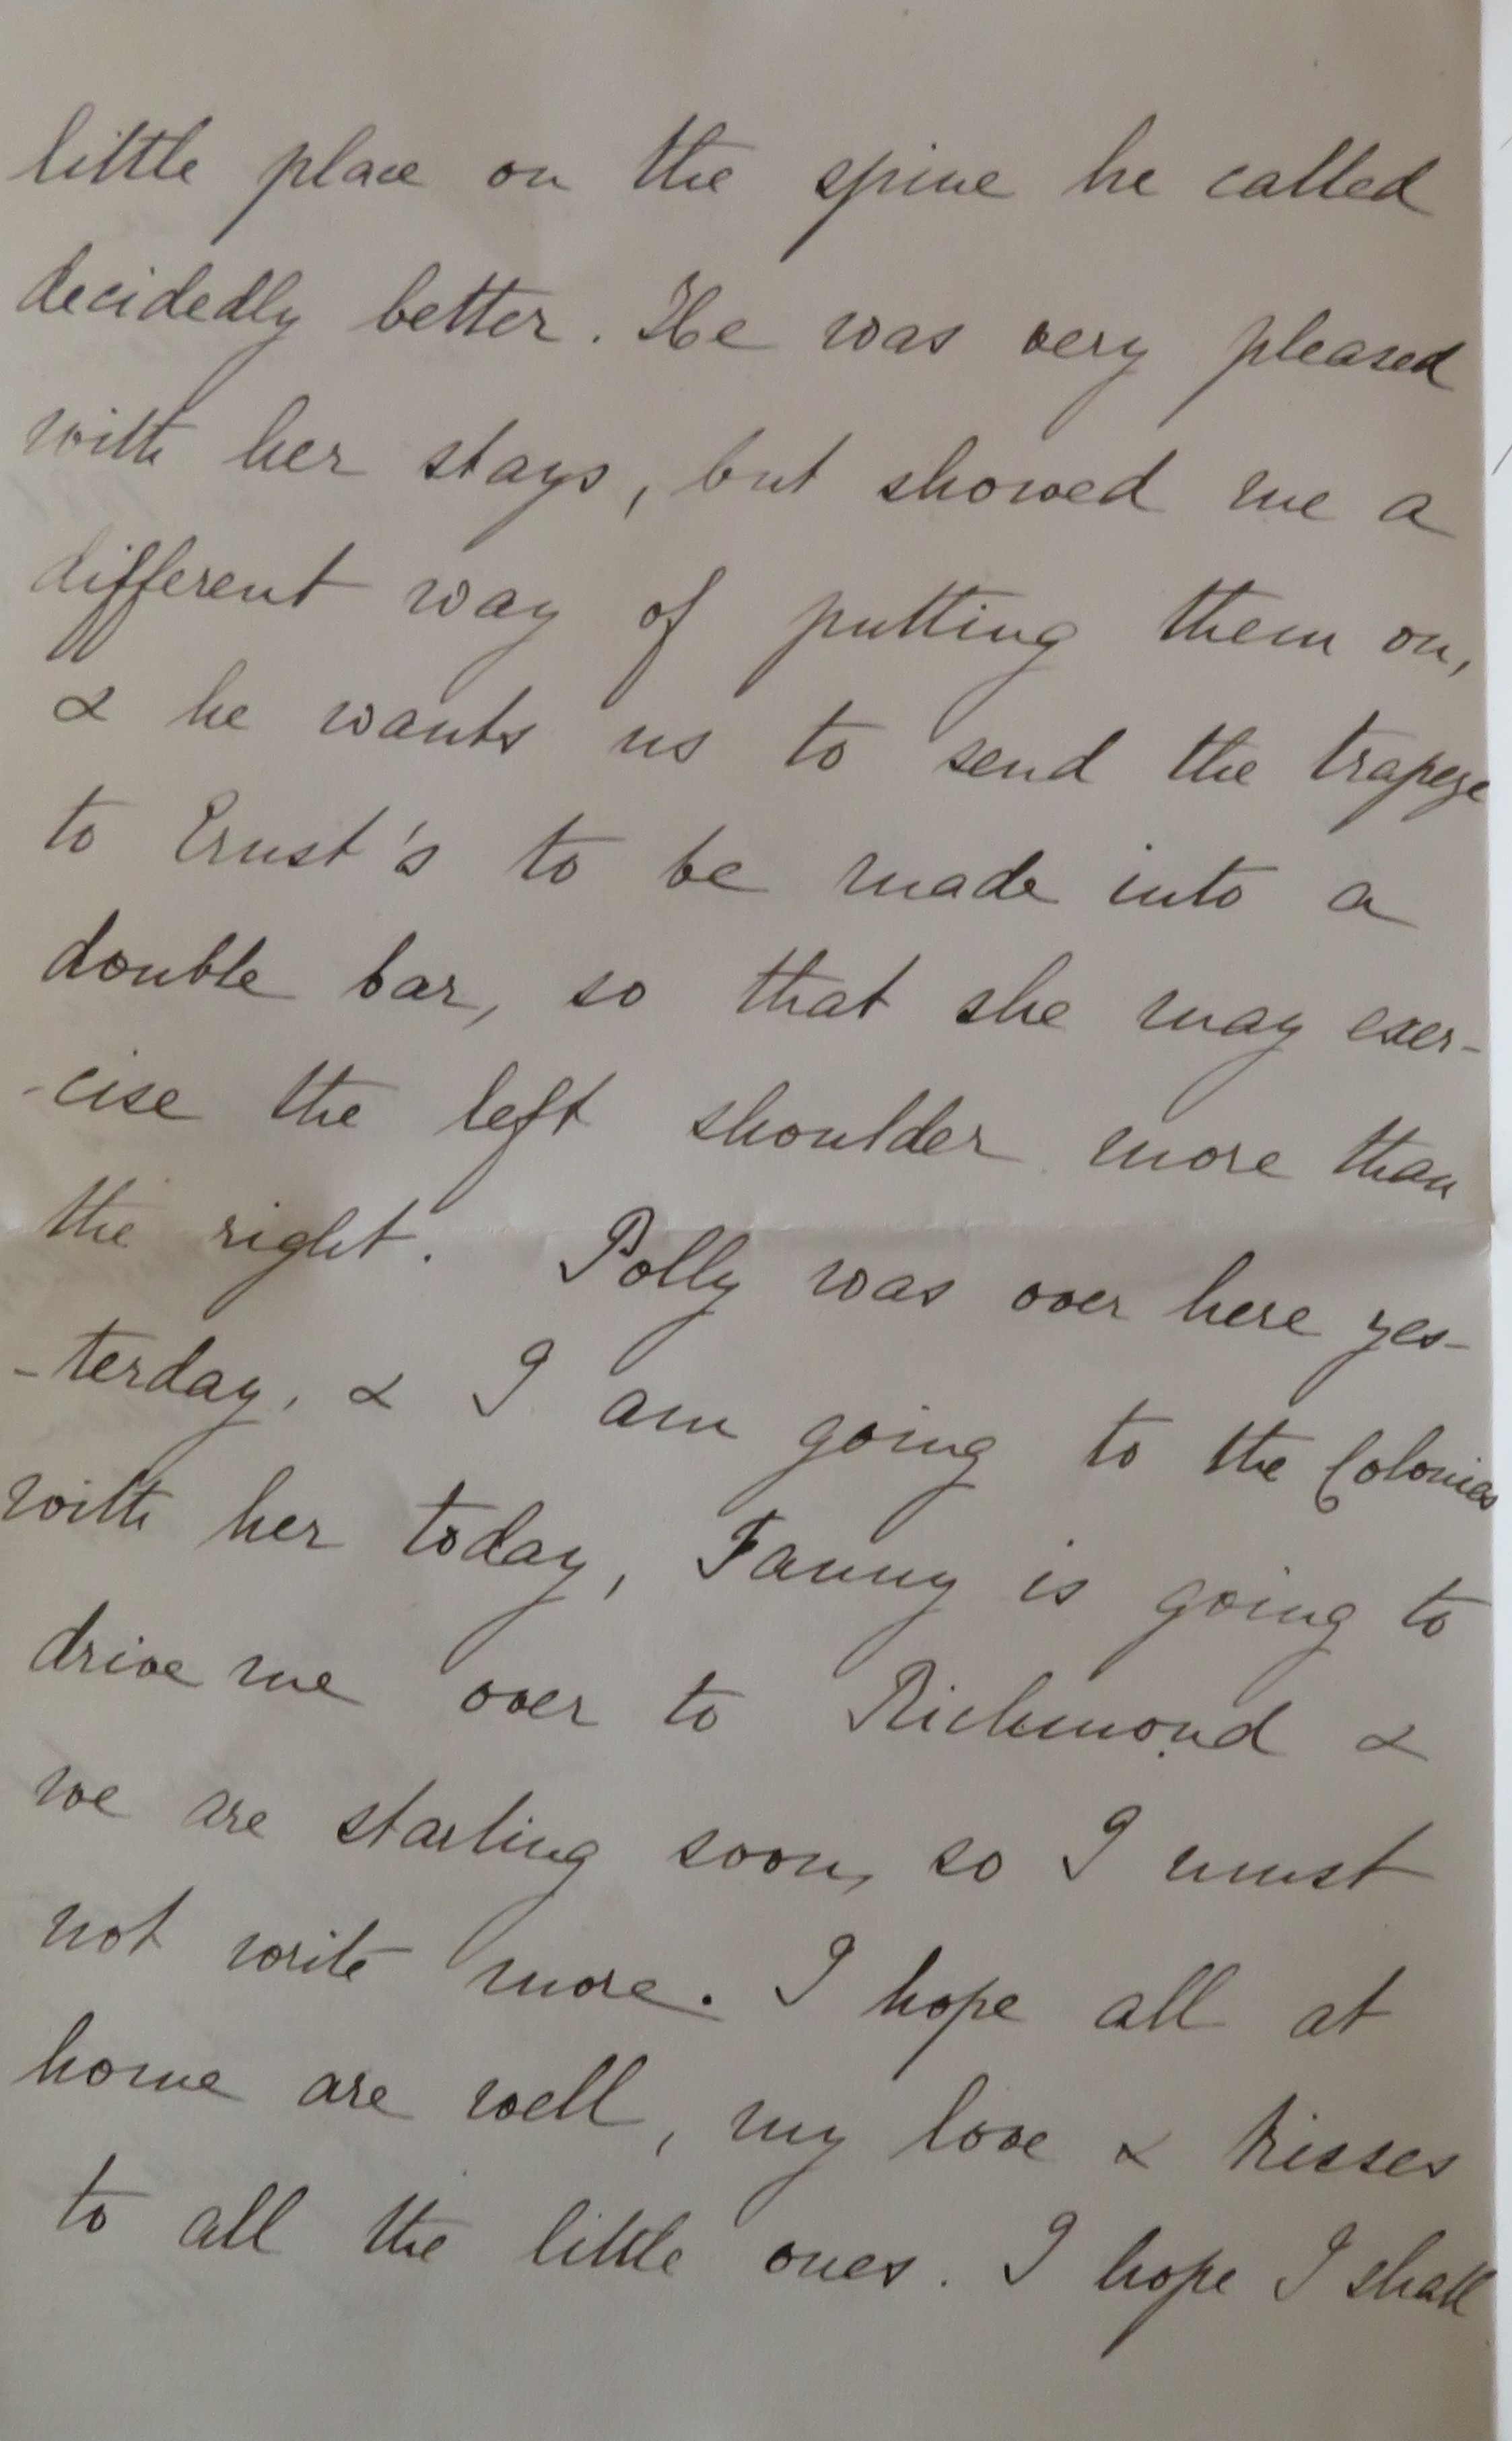 little place on the spine he called
decidedly better. He was very pleased
with her stays, but showed me a
different way of putting them on,
& he wants us to send the trapeze
to Ernst's to be made into a
double bar, so that she may exer-
-cise the left shoulder more than
the right. Polly was over here yes-
-terday, & I am going to the Colonies
with her today, Fanny is going to
drive me over to Richmond &
we are starting soon, so I must
not write more. I hope all at
home are well, my love & kisses
to all the little ones. I hope I shall